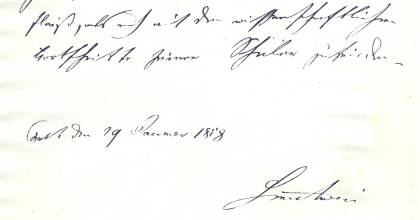 Fleiß, als auch mit den wissenschaftlichen
Fortschritte seiner Schüler zufrieden.
den 19 Januer 1818